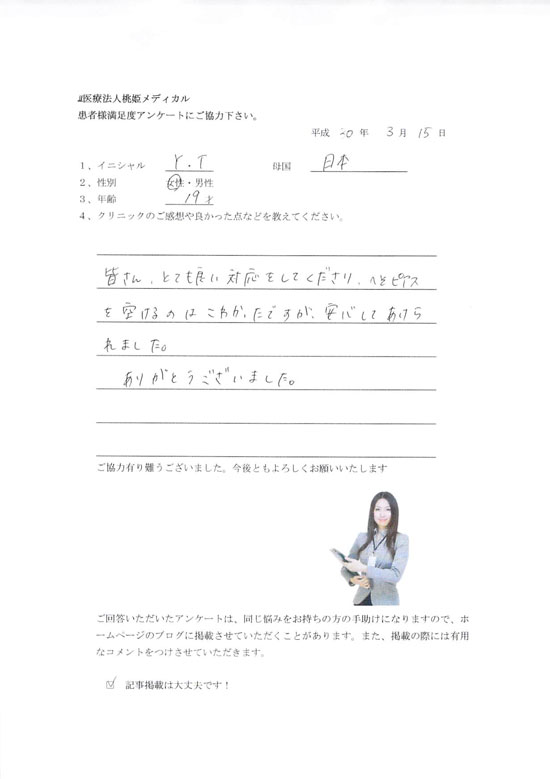 医療法人桃姫メディカル
患者様満足度アンケートにご協力下さい。
平成 20 年 3 月 15 日
1、イニシャル Y.T 母国 日本
2、性別 女性・男性
3、年齢 19才
4、クリニックのご感想や良かった点などを教えてください。
皆さん、とても良い対応をしてくださり、へそピアス
を空けるのはこわかったですが、安心してあけら
れました。
ありがとうございました。
ご協力有り難うございました。今後ともよろしくお願いいたします
ご回答いただいたアンケートは、同じ悩みをお持ちの方の手助けになりますので、ホ
ームページのブログに掲載させていただくことがあります。また、掲載の際には有用
なコメントをつけさせていただきます。
☑ 記事掲載は大丈夫です！